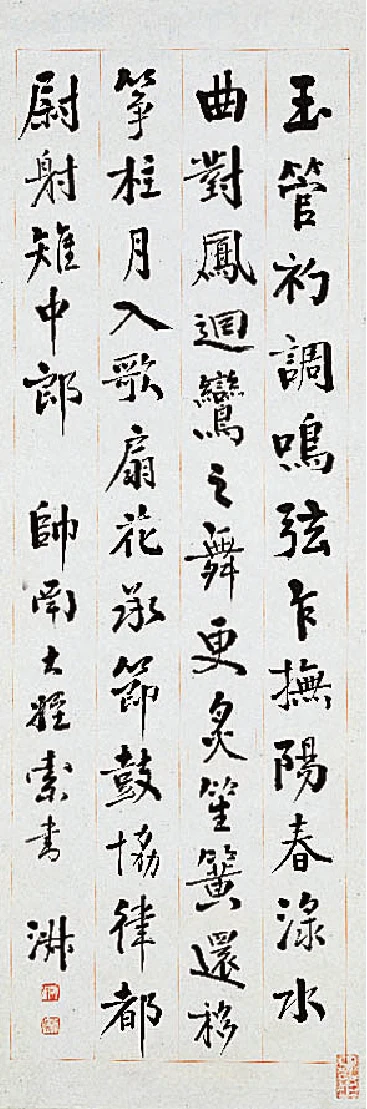 玉管初調鳴弦乍撫陽春淥水
曲對鳳迴鸞之舞更炙笙簧還移
箏柱月入歌扇花承節鼓協律都
尉射雉中郎 帥南大姪索書